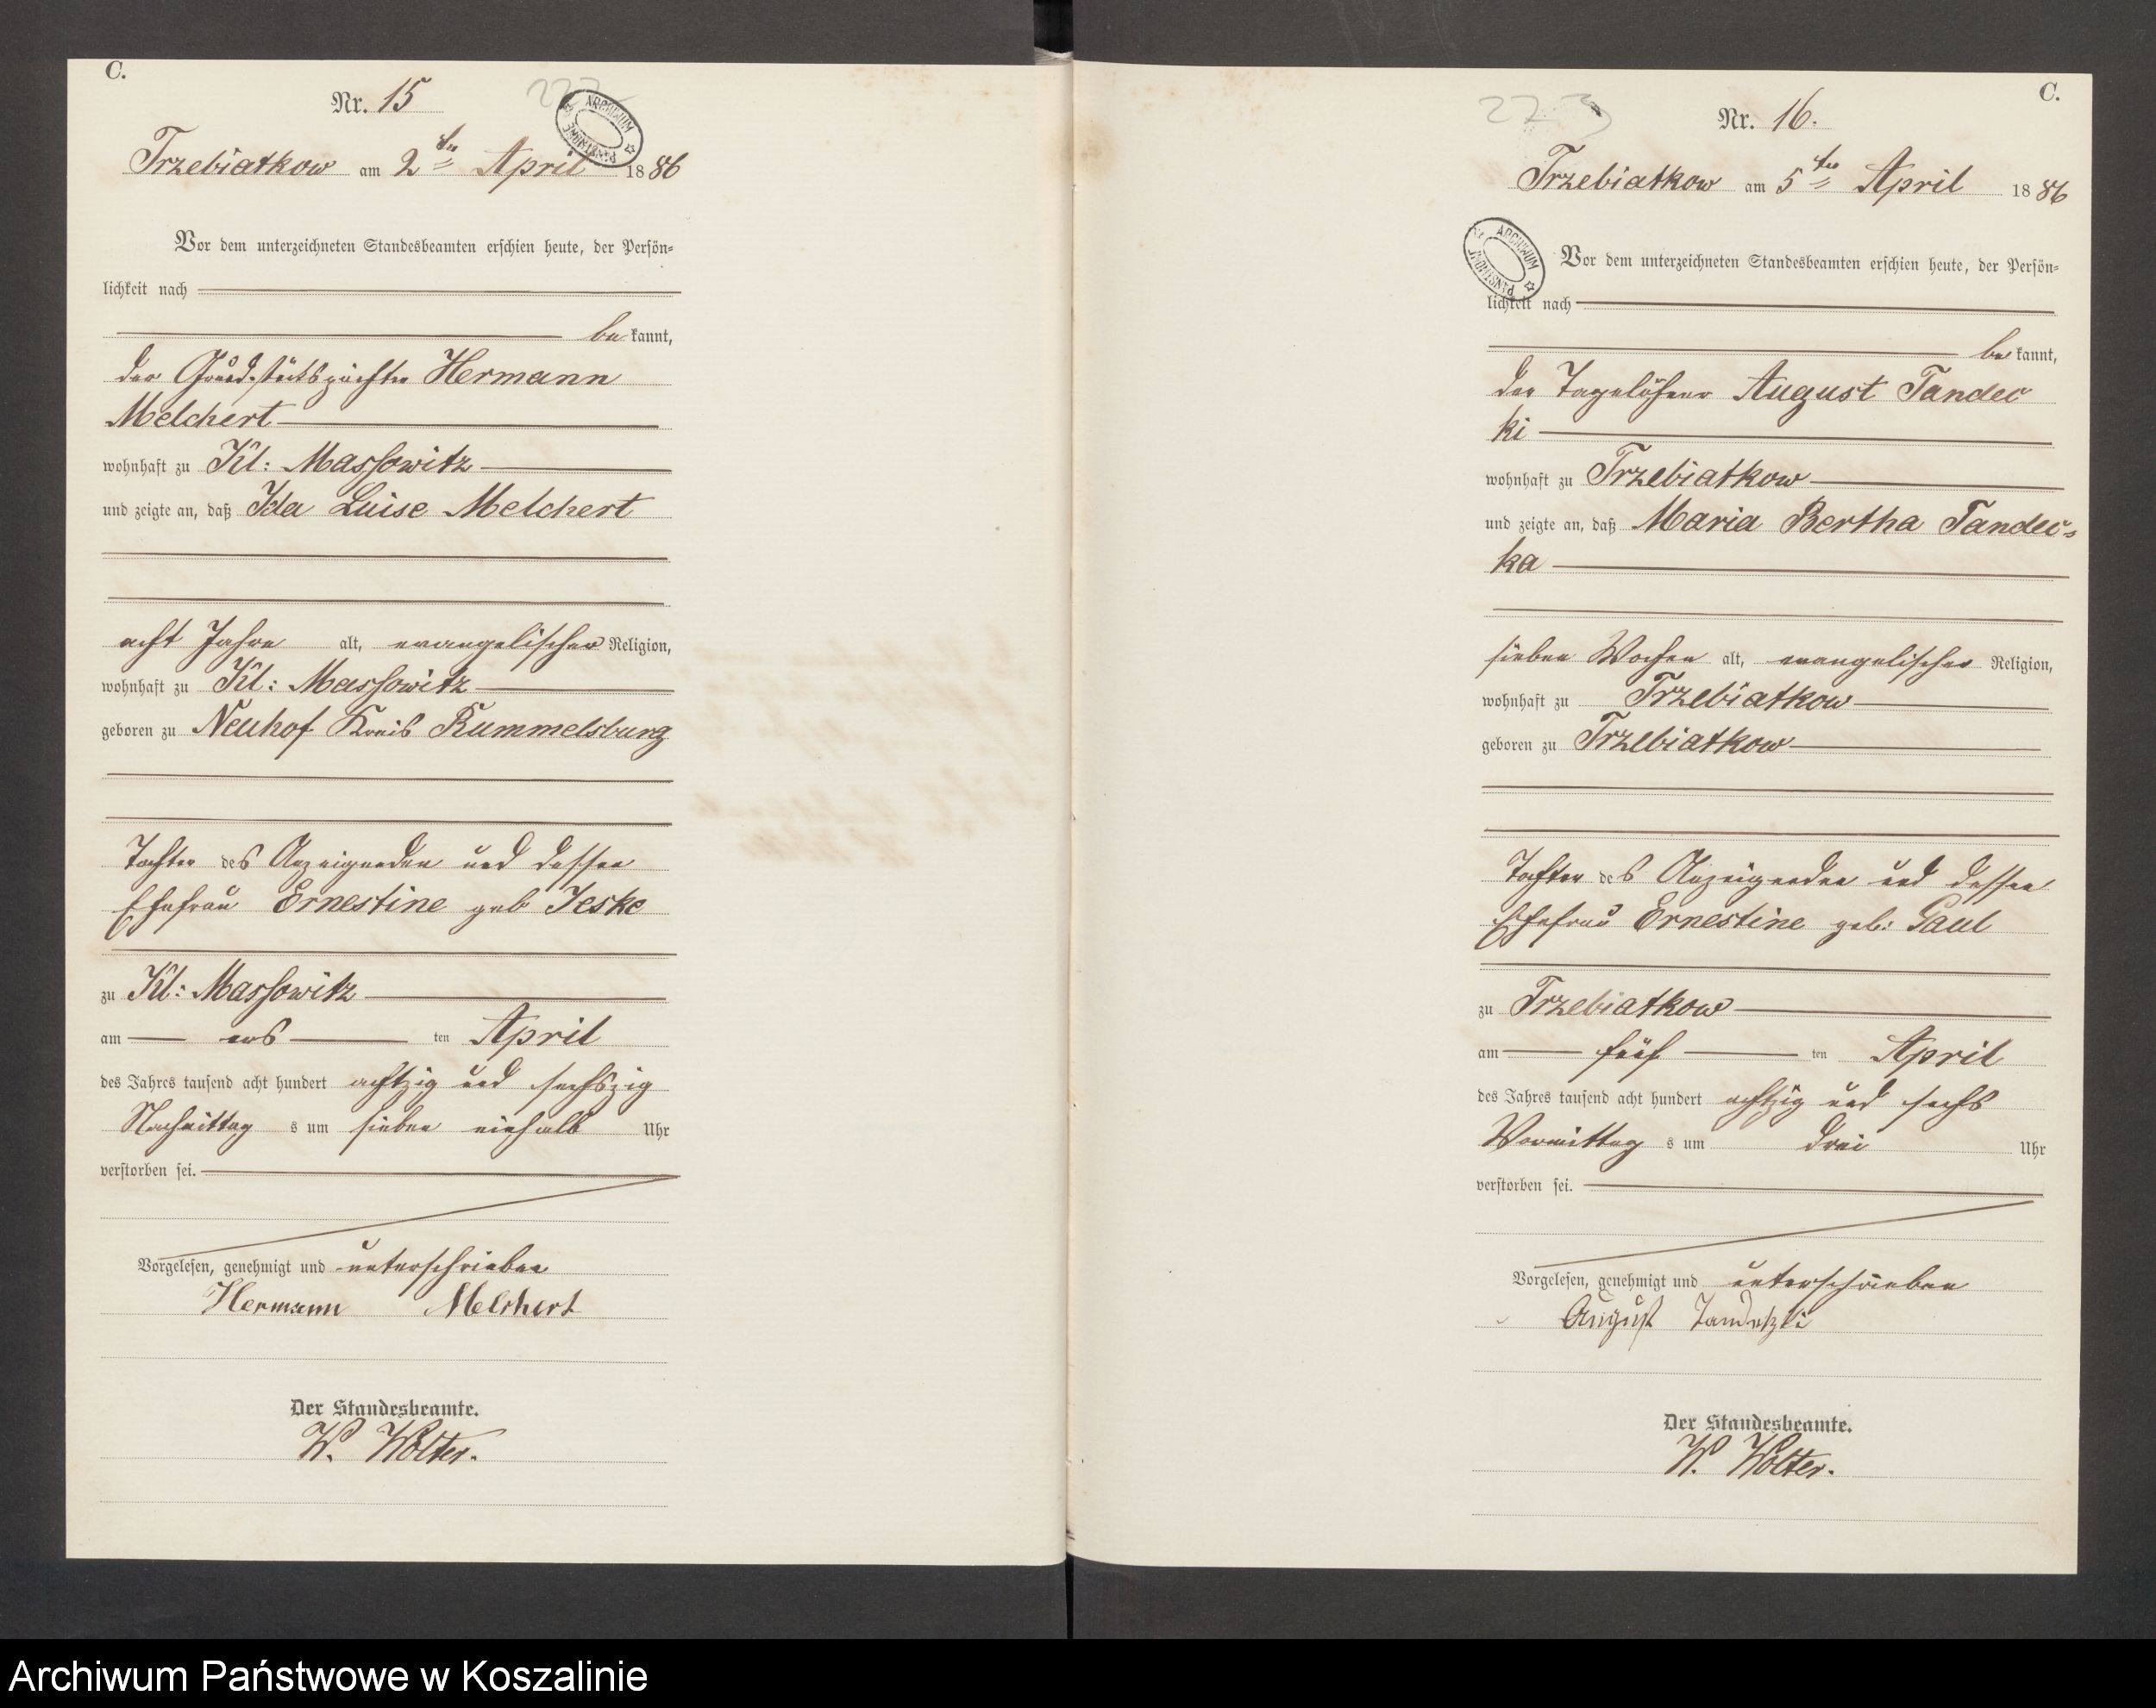 C.
Nr. 15
ARCHIWUM PAŃSTWOWE
Trzebiatkow am 2ten April 1886
Vor dem unterzeichneten Standesbeamten erschien heute, der Persön-
lichkeit nach
bekannt,
der Grundstückspächter Hermann
Melchert
wohnhaft zu Kl: Massowitz
und zeigte an, daß Ida Luise Melchert
acht Jahre alt, evangelischer Religion,
wohnhaft zu Kl: Massowitz
geboren zu Neuhof Kreis Rummelsburg
Tochter des Anzeigenden und dessen
Ehefrau Ernestine geb Jeske
zu Kl: Massowitz
am ten April
des Jahres tausend acht hundert achtzig und sechszig
Nachmittags um sieben einhalb Uhr
verstorben sei.
Vorgelesen, genehmigt und unterschrieben
Hermann Melchert
Der Standesbeamte.
W. Wolter.
C.
273
Nr. 16.
Trzebiatkow am 5ten April 1886
ARCHIWUM PAŃSTWOWE
Vor dem unterzeichneten Standesbeamten erschien heute, der Persön-
lichkeit nach
bekannt,
der Tagelöhner August Tandec
ki
wohnhaft zu Trzebiatkow
und zeigte an, daß Maria Bertha Tandec-
ka
sieben Wochen alt, evangelischer Religion,
wohnhaft zu Trzebiatkow
geboren zu Trzebiatkow
Tochter des Anzeigenden und dessen
Ehefrau Ernestine geb: Paul
zu Trzebiatkow
am fünf ten April
des Jahres tausend acht hundert achtzig und sechs
Vormittags um drei Uhr
verstorben sei.
Vorgelesen, genehmigt und unterschrieben
August Tandetzki
Der Standesbeamte.
W. Wolter.
Archiwum Państwowe w Koszalinie